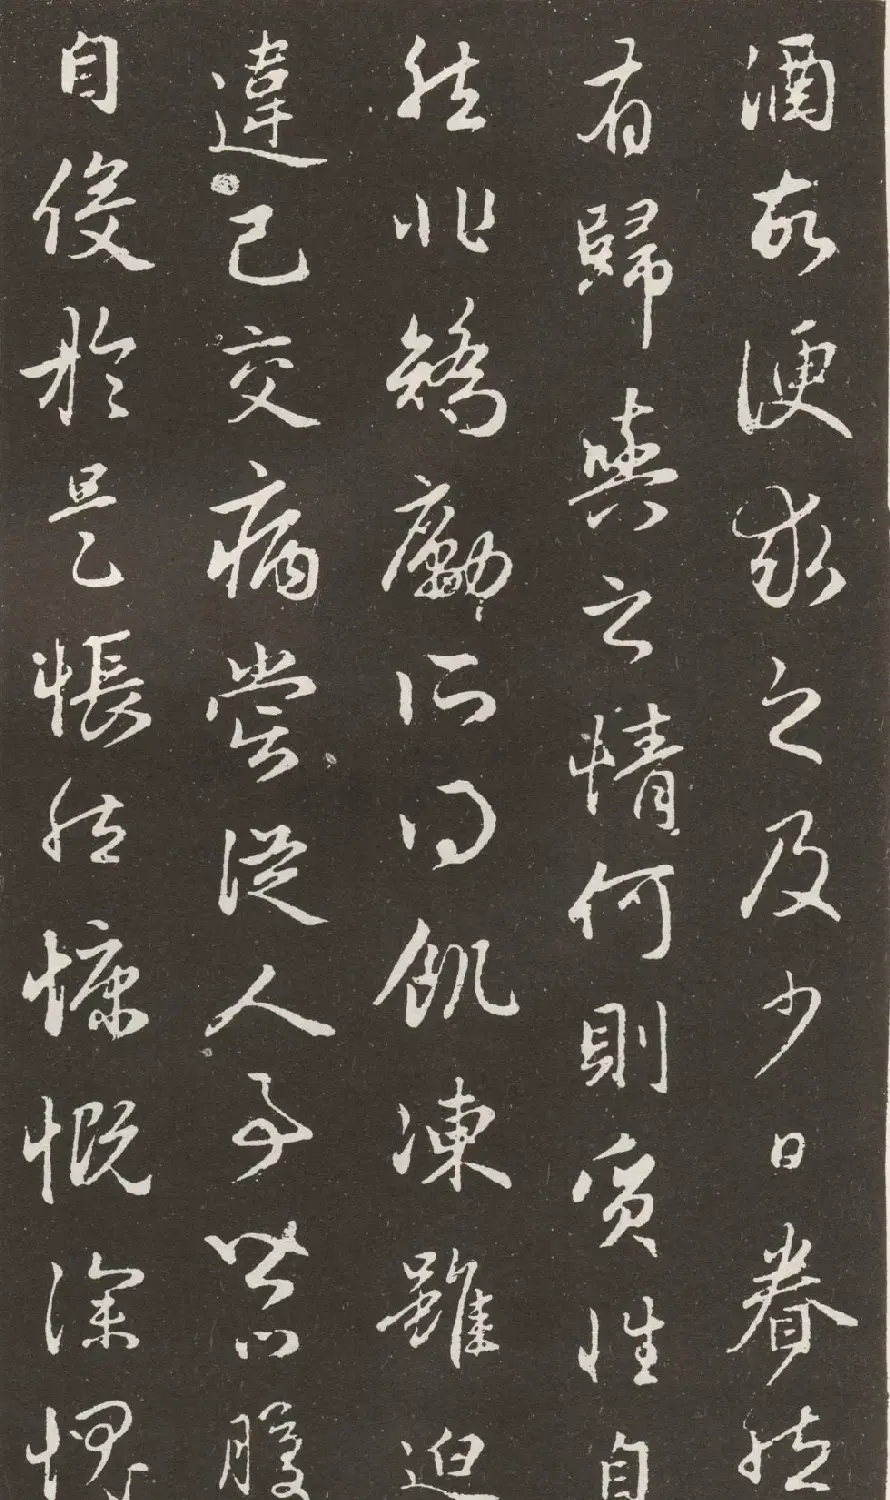 酒故便求之及少日眷然
有歸與之情何則質性自
然非矯勵所得飢凍雖迫
違己交病嘗從人事皆口腹
自役於是悵然慷慨深愧